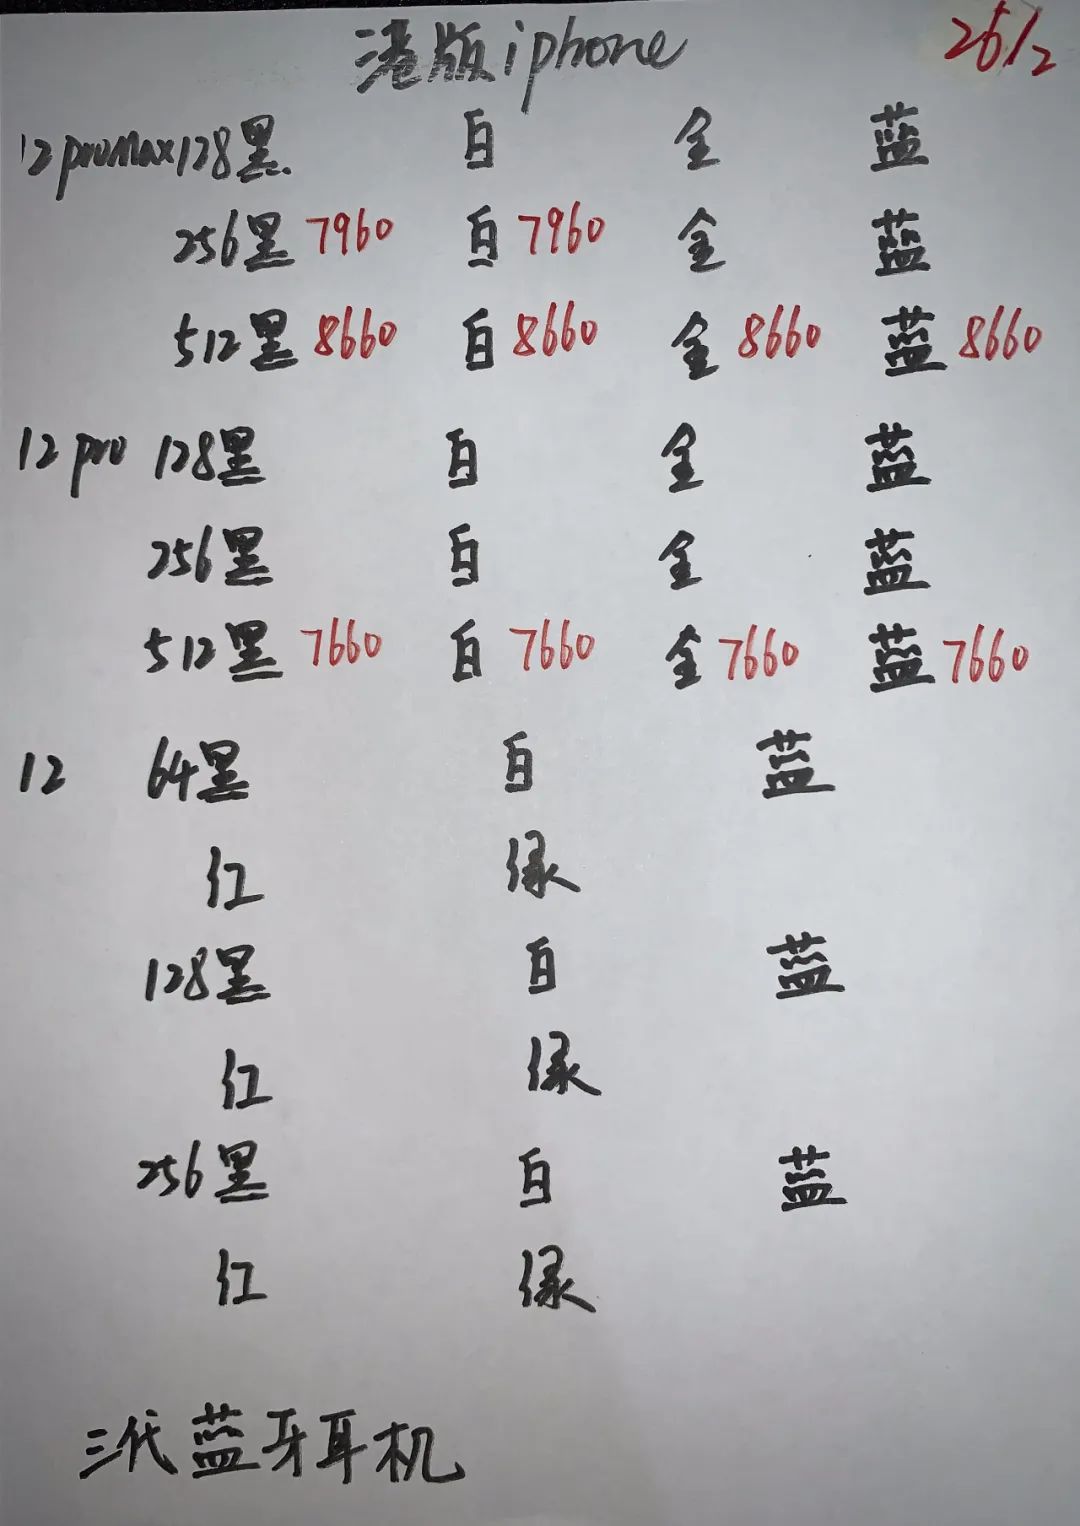 港版iphone 26/2
12promax128黑 白 金 蓝
256黑 7960 白 7960 金 蓝
512黑 8660 白 8660 金 8660 蓝 8660
12pro 128黑 白 金 蓝
256黑 白 金 蓝
512黑 7660 白 7660 金 7660 蓝 7660
12 64黑 白 蓝
红 绿
128黑 白 蓝
红 绿
256黑 白 蓝
红 绿
三代蓝牙耳机